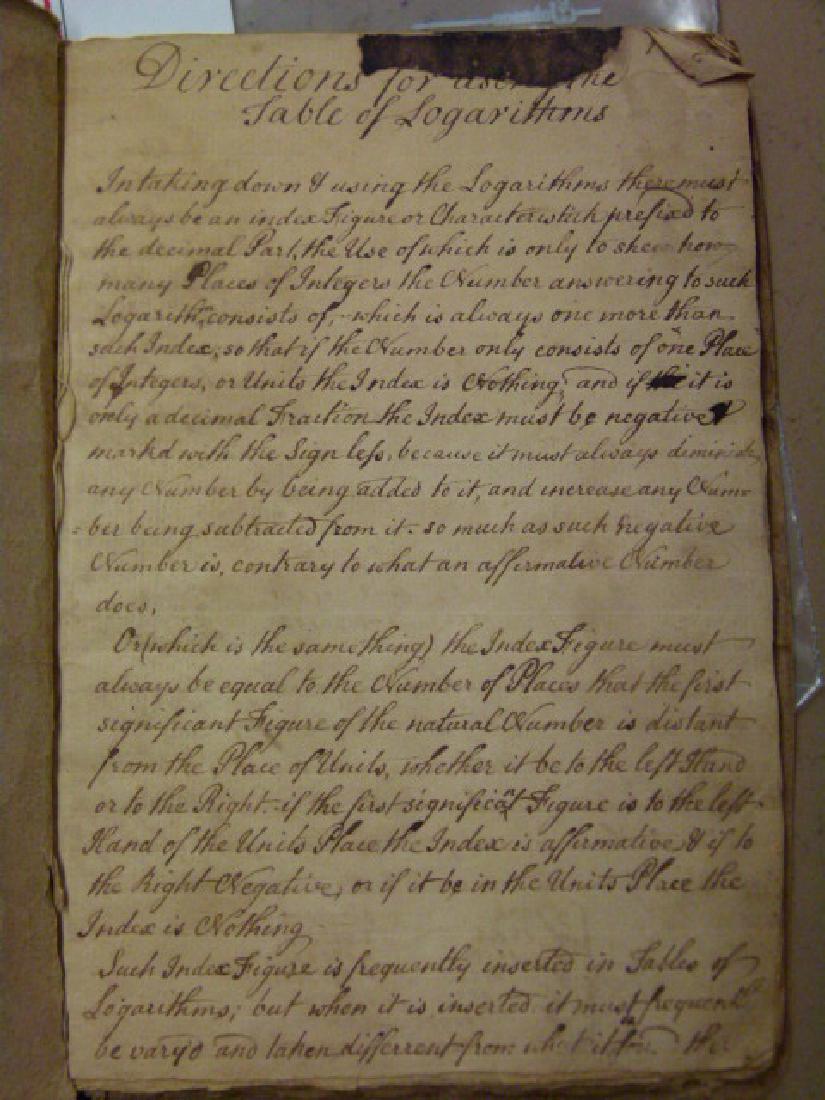 Directions for using the
Table of Logarithms
In taking down & using the Logarithms there must
always be an index Figure or Character which prefixd to
the decimal Part, the Use of which is only to shew how
many Places of Integers the Number answering to such
Logarithm consists of, which is always one more than
such Index; so that if the Number only consists of one Place
of Integers, or Units the Index is Nothing; and if it is
only a decimal Fraction the Index must be negative &
marked with the Sign less, because it must always diminish
any Number by being added to it, and increase any Num-
=ber being subtracted from it - so much as such negative
Number is, contrary to what an affirmative Number
does,
Or (which is the same thing) the Index Figure must
always be equal to the Number of Places that the first
significant Figure of the natural Number is distant
from the Place of Units, whether it be to the left Hand
or to the Right - if the first significat Figure is to the left
Hand of the Units Place the Index is affirmative & if to
the Right Negative, or if it be in the Units Place the
Index is Nothing
Such Index Figure is frequently inserted in Tables of
Logarithms; but when it is inserted it must frequently
be varyd and taken differrent from what it the